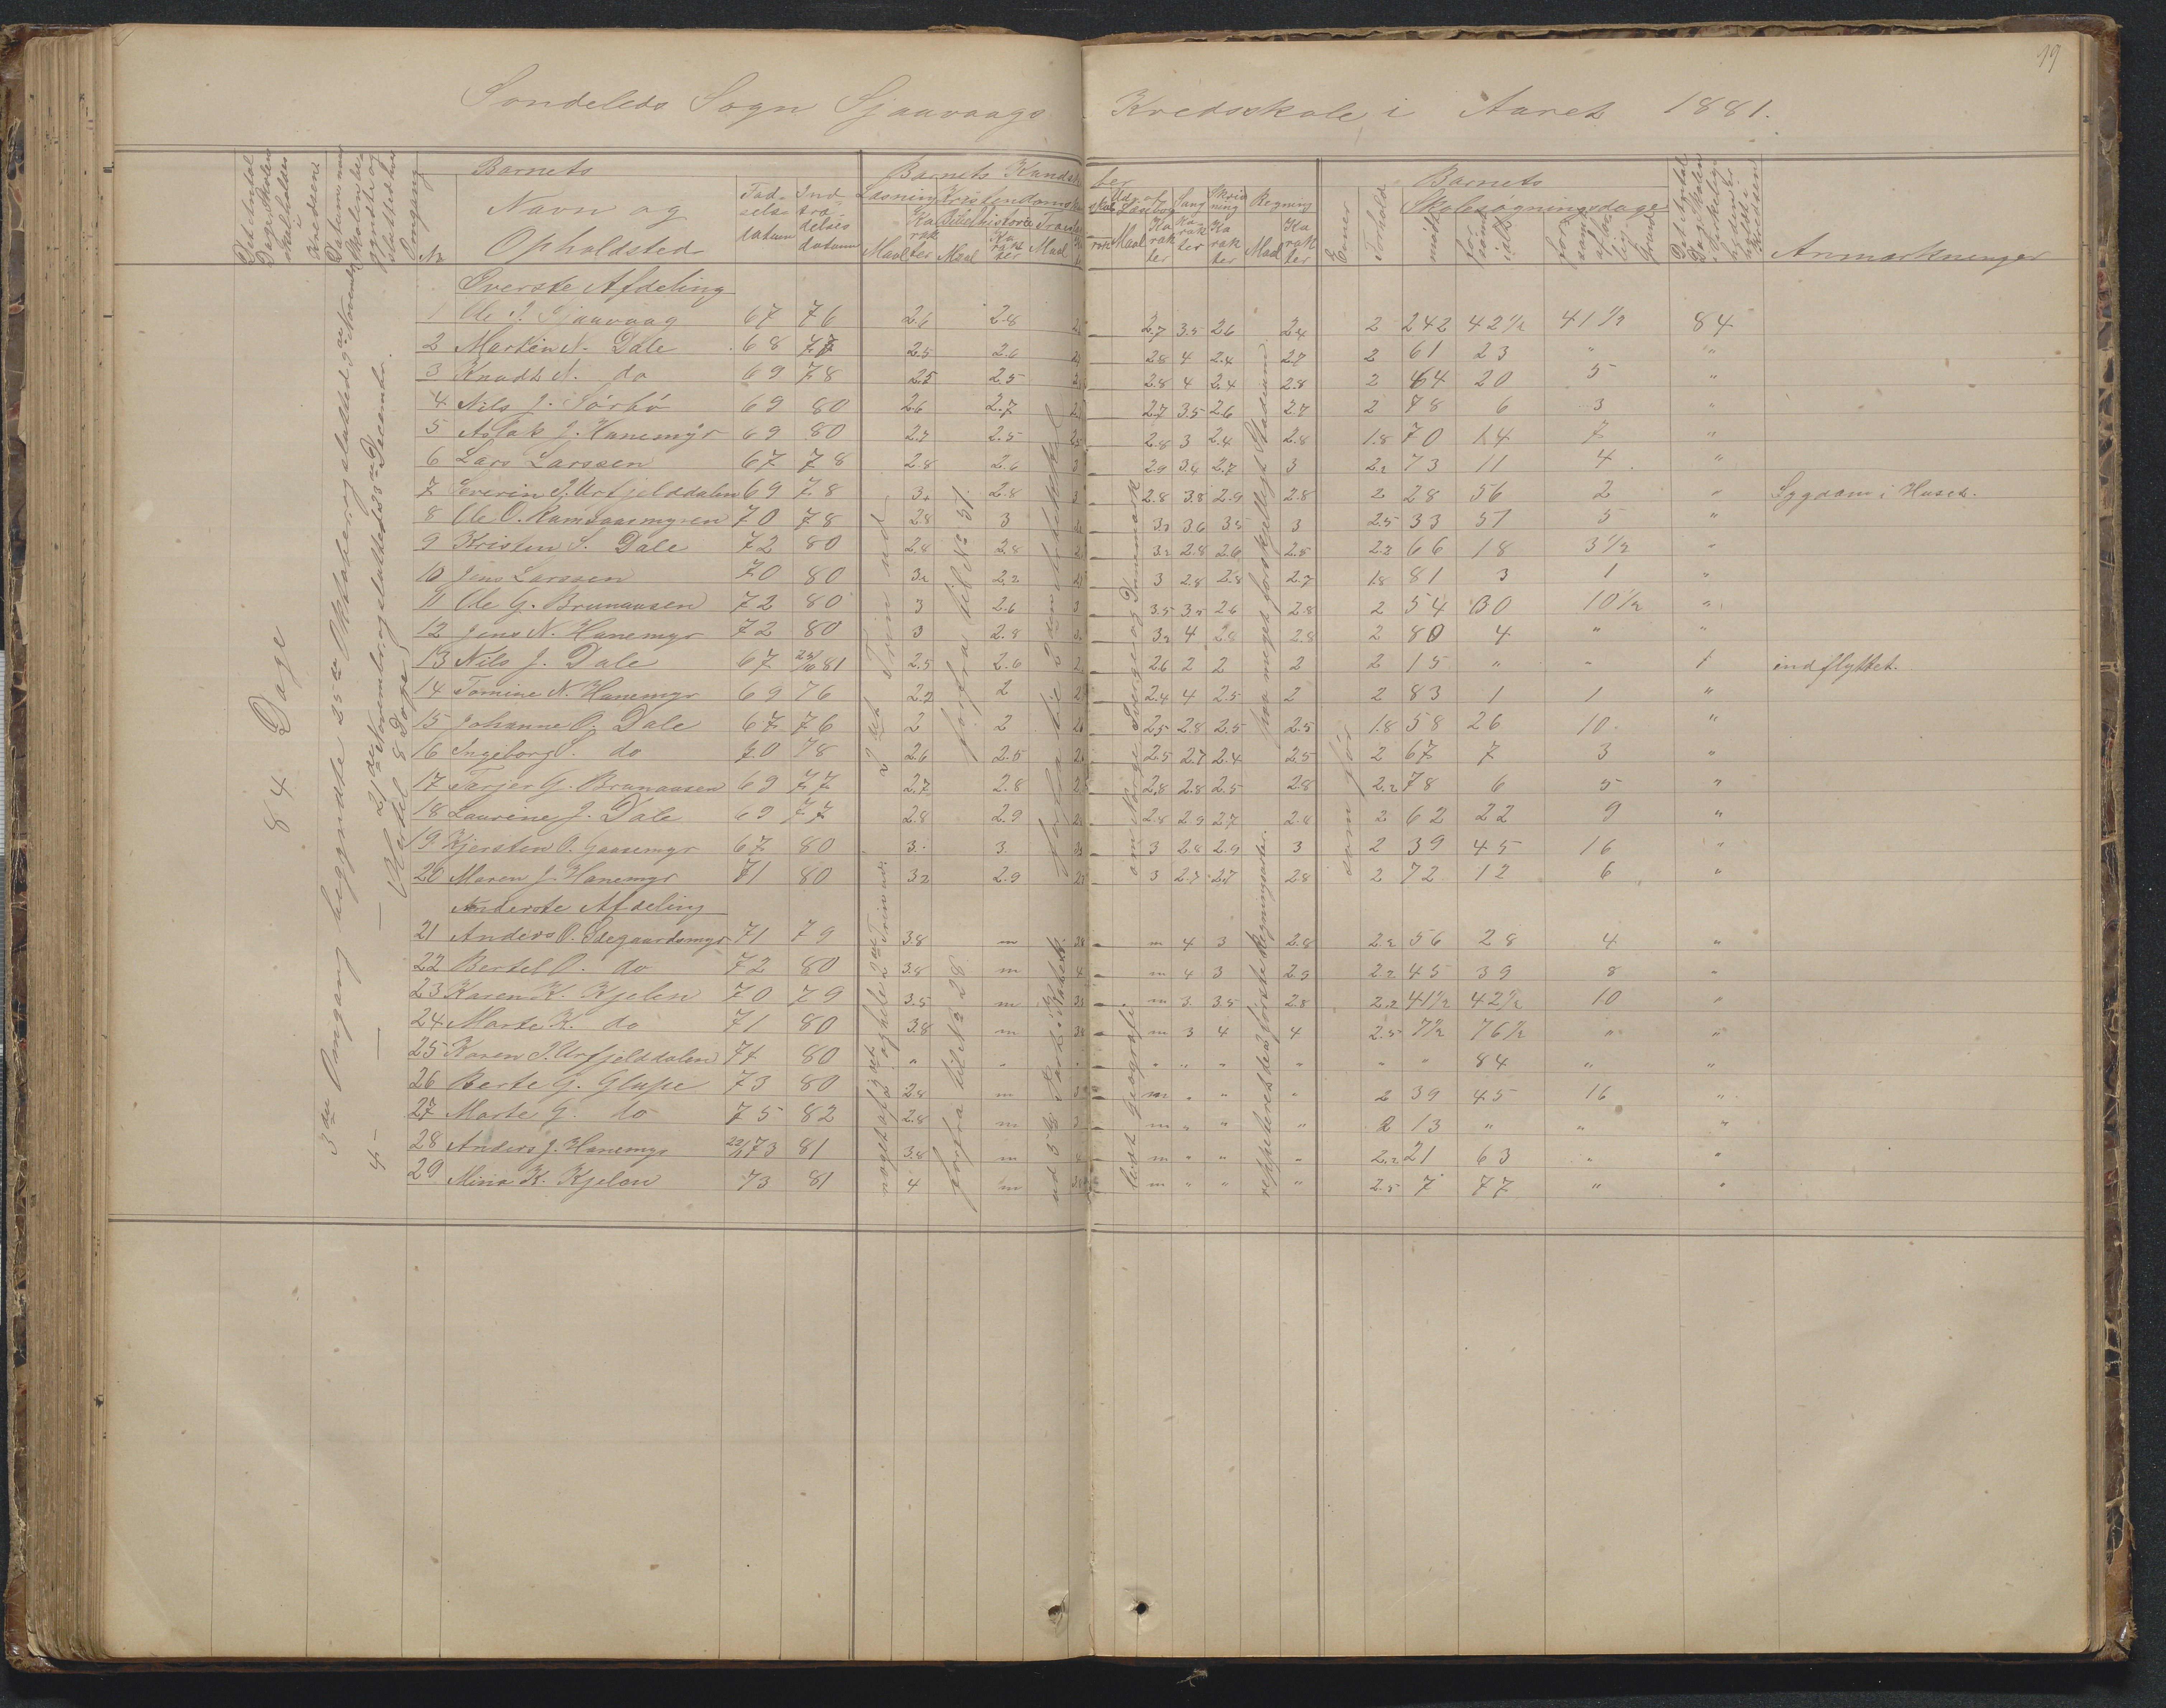 19
Søndeleds Sogn Sjaavaags Kredsskole i Aaret 1881.
Det Antal Dage Skolen skal holdes i Kredsene
Datum naar Skolen begyndte og sluttedes hver Omgang
No
Barnets
Navn og Opholdsted
Fødselsdatum
Indtrædelsesdatum
Barnets Kundskaber
Læsning Kristendomskundskab Udv. af Læsebog Sang Skrivning Regning
Maal Karakter Bibelhistorie Maal Karakter Troeslære Maal
Maal Karakter Karakter Karakter Maal Karakter
Evner
Forhold
Barnets
Skolesøgningsdage
mødt
forsømt ialt
forsømt af lovlig Grund
Det Antal Dage Skolen i Virkeligheden er holdt i Kredsen
Anmærkninger
84 Dage
3die Omgang begyndte 25de Oktober og sluttede 9de November
4 — — 21de November og sluttede 23de December.
Øverste Afdeling
1 Ole J. Sjaavaag 67 76 2.6 2.8 2.7 3.5 2.6 2.4 2 242 42½ 41½ 84
2 Martin N. Dale 68 77 2.5 2.6 2.8 4 2.4 2.7 2 61 23 " "
3 Knudt N. do 69 78 2.5 2.5 2.8 4 2.4 2.8 2 64 20 5 "
4 Nils J. Sørbø 69 80 2.6 2.7 2.7 3.5 2.6 2.7 2 78 6 3 "
5 Aslak J. Hanemyr 69 80 2.7 2.5 2.8 3 2.4 2.8 1.8 70 14 7 "
6 Lars Larssen 67 78 2.8 2.6 2.9 3.4 2.7 3 2.2 73 11 4 "
7 Severin J. Urfjelddalen 69 78 3. 2.8 2.8 3.8 2.9 2.8 2 28 56 2 " Sygdom i Huset.
8 Ole O. Ramsaasmyren 70 78 2.8 3 3.2 3.6 3.5 3 2.5 33 51 5 "
9 Kristen S. Dale 72 80 2.8 2.8 3.2 2.8 2.6 2.5 2.2 66 18 3½ "
10 Jens Larssen 70 80 3.2 2.2 3 2.8 2.8 2.7 1.8 81 3 1 "
11 Ole G. Brunaasen 72 80 3 2.6 3.5 3.5 2.6 2.8 2 54 30 10½ "
12 Jens N. Hanemyr 72 80 3 2.8 3.2 4 2.8 2.8 2 80 4 " "
13 Nils J. Dale 67 25/10 81 2.5 2.6 2.6 2 2 2 2 15 " " 1 indflyttet.
14 Tomine N. Hanemyr 69 76 2.2 2 2.4 4 2.5 2 2 83 1 1 "
15 Johanne O. Dale 67 76 2 2 2.5 2.8 2.5 2.5 1.8 58 26 10. "
16 Ingeborg S. do 70 78 2.6 2.5 2.5 2.7 2.4 2.5 2 67 7 3 "
17 Tarjer G. Brunaasen 69 77 2.7 2.8 2.8 2.8 2.5 2.8 2.2 78 6 5 "
18 Laurine J. Dale 69 77 2.8 2.9 2.8 2.9 2.7 2.8 2 62 22 9 "
19 Kjersten O. Gaasemyr 67 80 3. 3 3 2.8 2.9 3 2 39 45 16 "
20 Maren J. Hanemyr 71 80 3.2 2.9 3 2.7 2.7 2.8 2 72 12 6 "
Underste Afdeling
21 Anders O. Ødegaardsmyr 71 79 3.8 m m 4 3 2.8 2.2 56 28 4 "
22 Bertel O. do 72 80 3.8 m m 4 3 2.9 2.2 45 39 8 "
23 Karen K. Kjelen 70 79 3.5 m m 3 3.5 2.8 2.2 41½ 42½ 10 "
24 Marte K. do 71 80 3.8 m m 3 4 4 2.5 7½ 76½ " "
25 Karen J. Urfjelddalen 74 80 " " " " " " " " 84 " "
26 Berte G. Glupe 73 80 2.8 m m " " " 2 39 45 16 "
27 Marte G. do 75 82 2.8 m m " " " 2 13 " " "
28 Anders J. Hanemyr 73 81 3.8 m m " " " 2.2 21 63 " "
29 Mina K. Kjelen 73 81 4 m m " " " 2.5 7 77 " "
2det Trin ud
forfra til No 51.
forfra til 2den Artikel
om Norge Sverge og Danmark
paa meget forskjelligt Stadium
som før
forfra til No 28
læst geografi
reppeteret de 4 første Regningsarter.